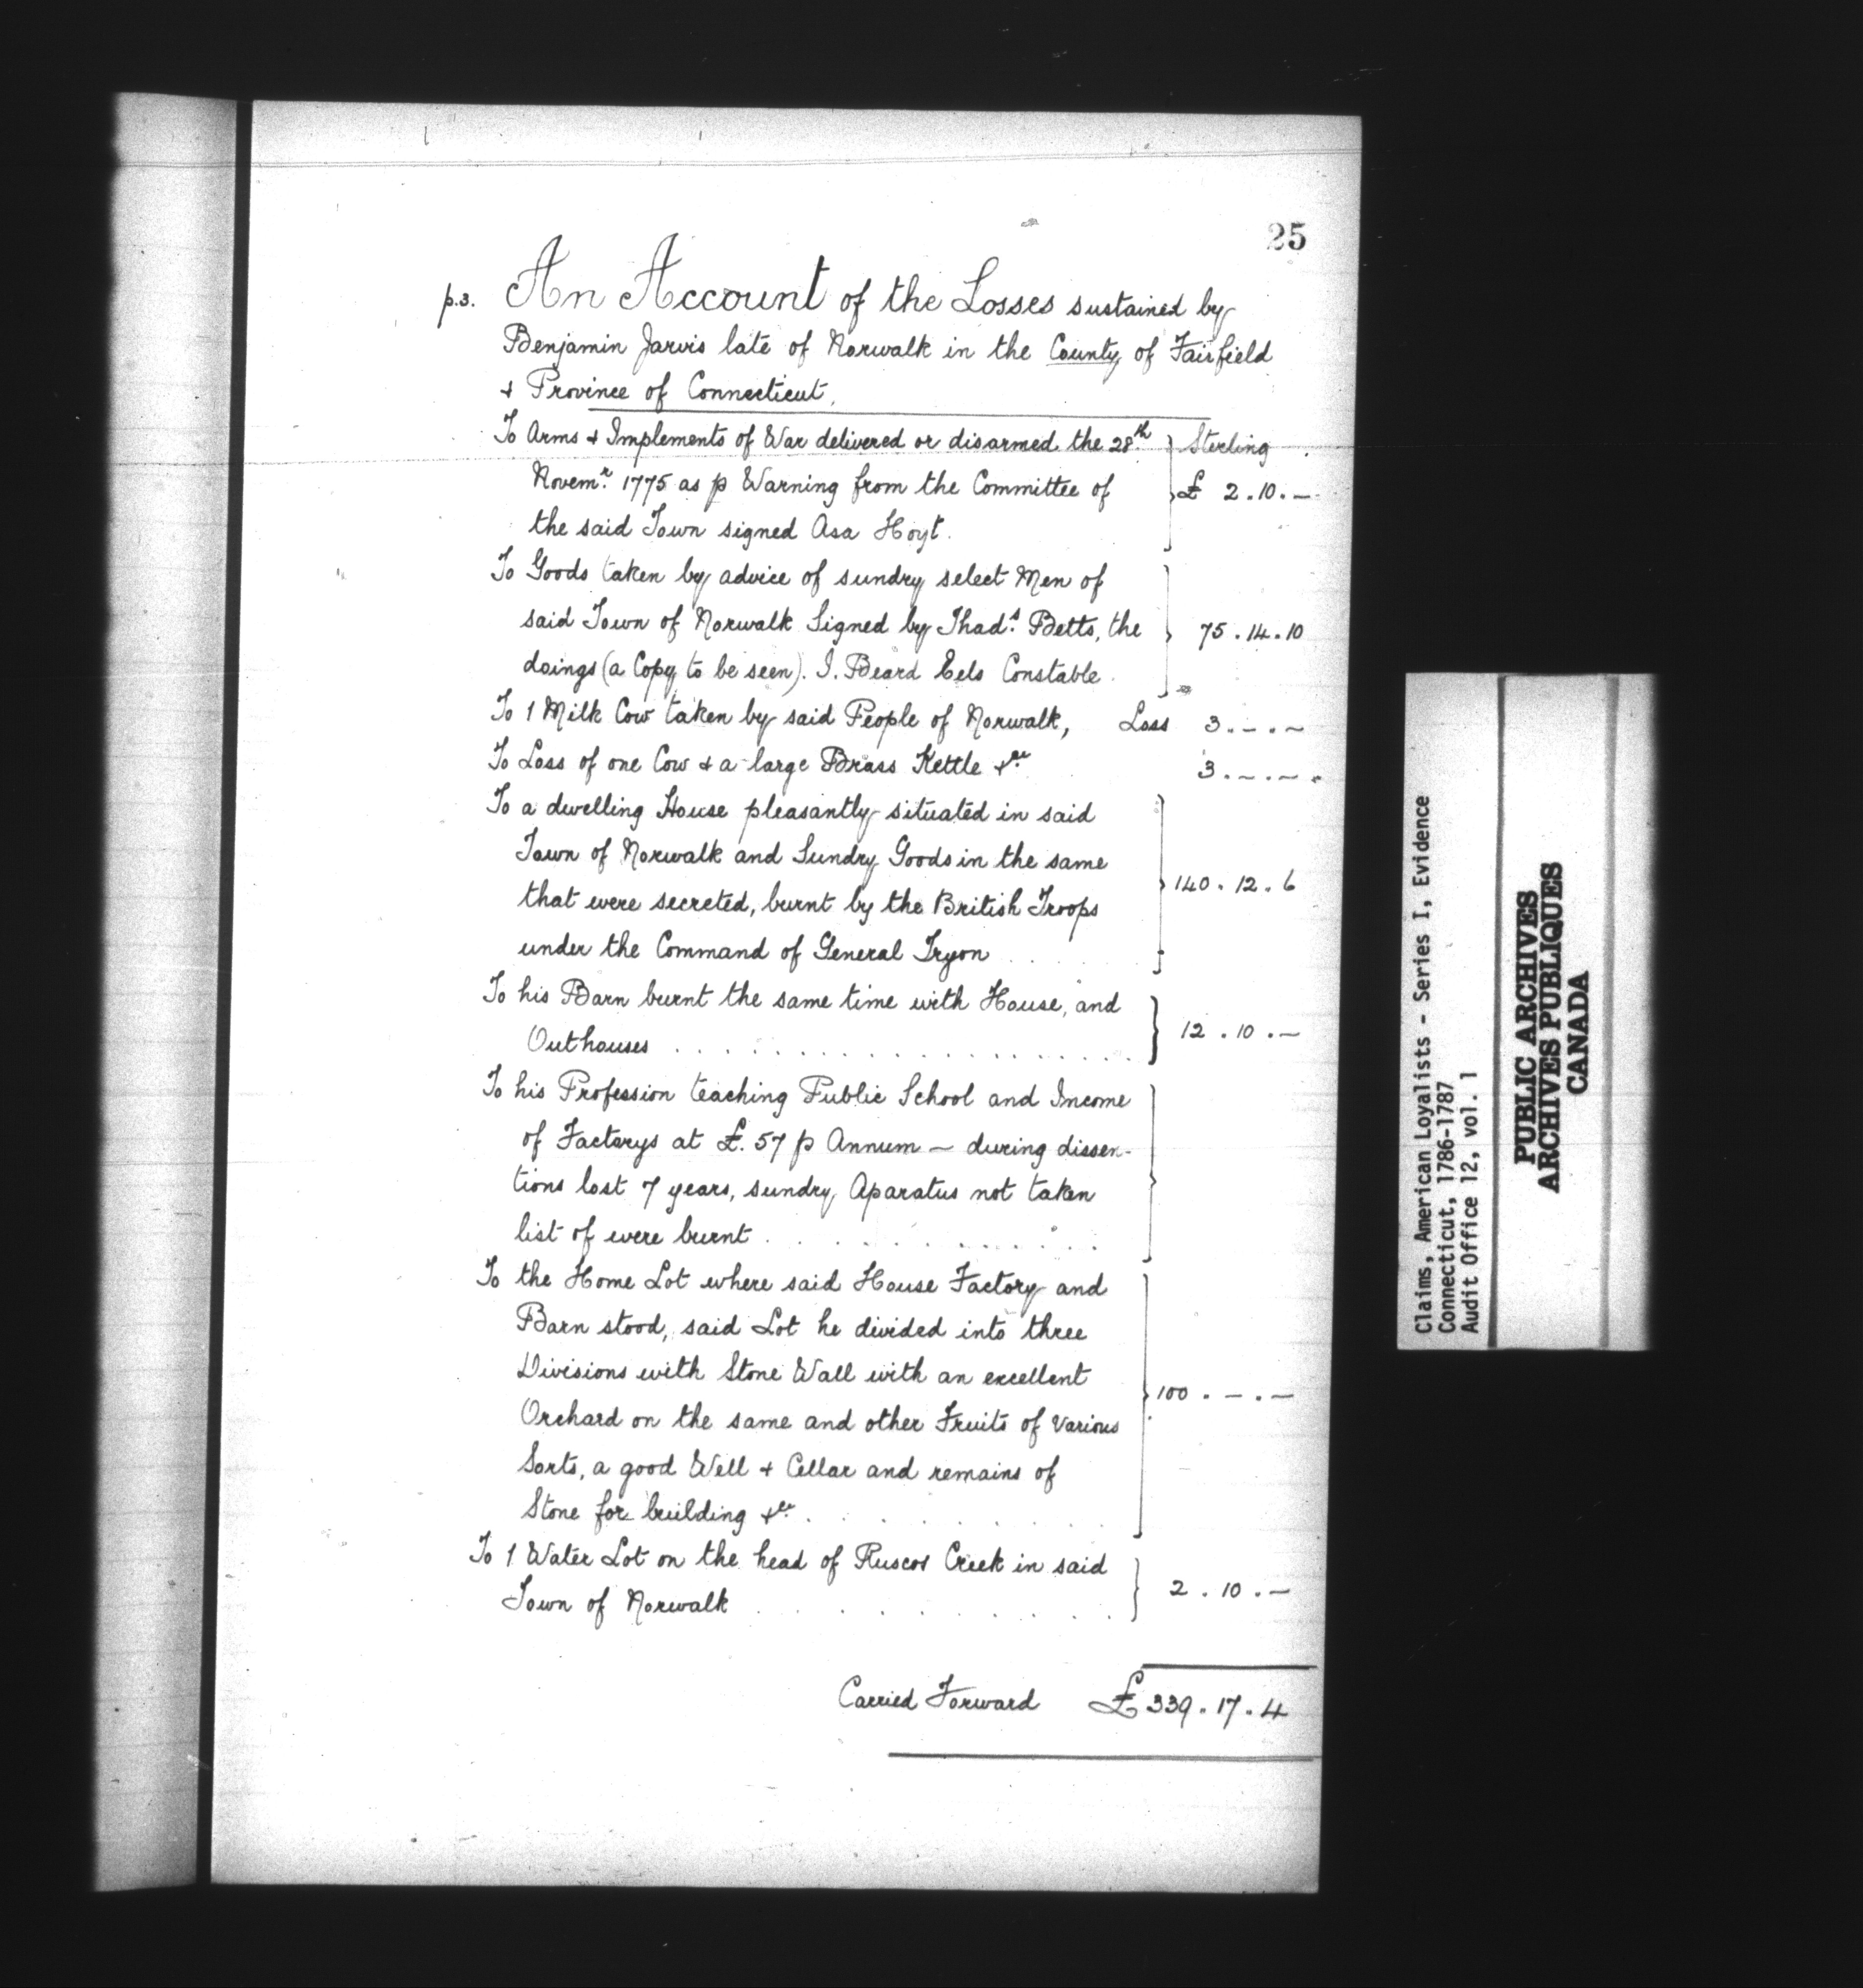 25
p.3. An Account of the Losses sustained by
Benjamin Jarvis late of Norwalk in the County of Fairfield
& Province of Connecticut.
To Arms & Implements of War delivered or disarmed the 28th Sterling
Novemr. 1775 as p Warning from the Committee of £ 2.10.—
the said Town signed Asa Hoyt.
To Goods taken by advice of sundry select Men of
said Town of Norwalk Signed by Thads. Betts, the 75.14.10
doings (a Copy to be seen). I. Beard Eels Constable.
To 1 Milk Cow taken by said People of Norwalk, Loss 3.—.—
To Loss of one Cow & a large Brass Kettle &ca. 3.—.—.
To a dwelling House pleasantly situated in said
Town of Norwalk and Sundry Goods in the same
that were secreted, burnt by the British Troops 140.12.6
under the Command of General Tryon . . . . .
To his Barn burnt the same time with House, and
Outhouses . . . . . . . . . . . . . . . . . . . 12.10.—
To his Profession teaching Public School and Income
of Factorys at £.57 p Annum — during dissen-
tions lost 7 years, sundry Aparatus not taken
list of were burnt . . . . . . . . . .
To the Home Lot where said House Factory and
Barn stood, said Lot he divided into three
Divisions with Stone Wall with an excellent
Orchard on the same and other Fruits of various 100.—.—
Sorts, a good Well & Cellar and remains of
Stone for building &ca. . . . . . . . .
To 1 Water Lot on the head of Ruscos Creek in said
Town of Norwalk . . . . . . . . . . 2.10.—
Carried Forward £339.17.4
Claims, American Loyalists - Series I, Evidence
Connecticut, 1786-1787
Audit Office 12, vol. 1
PUBLIC ARCHIVES
ARCHIVES PUBLIQUES
CANADA